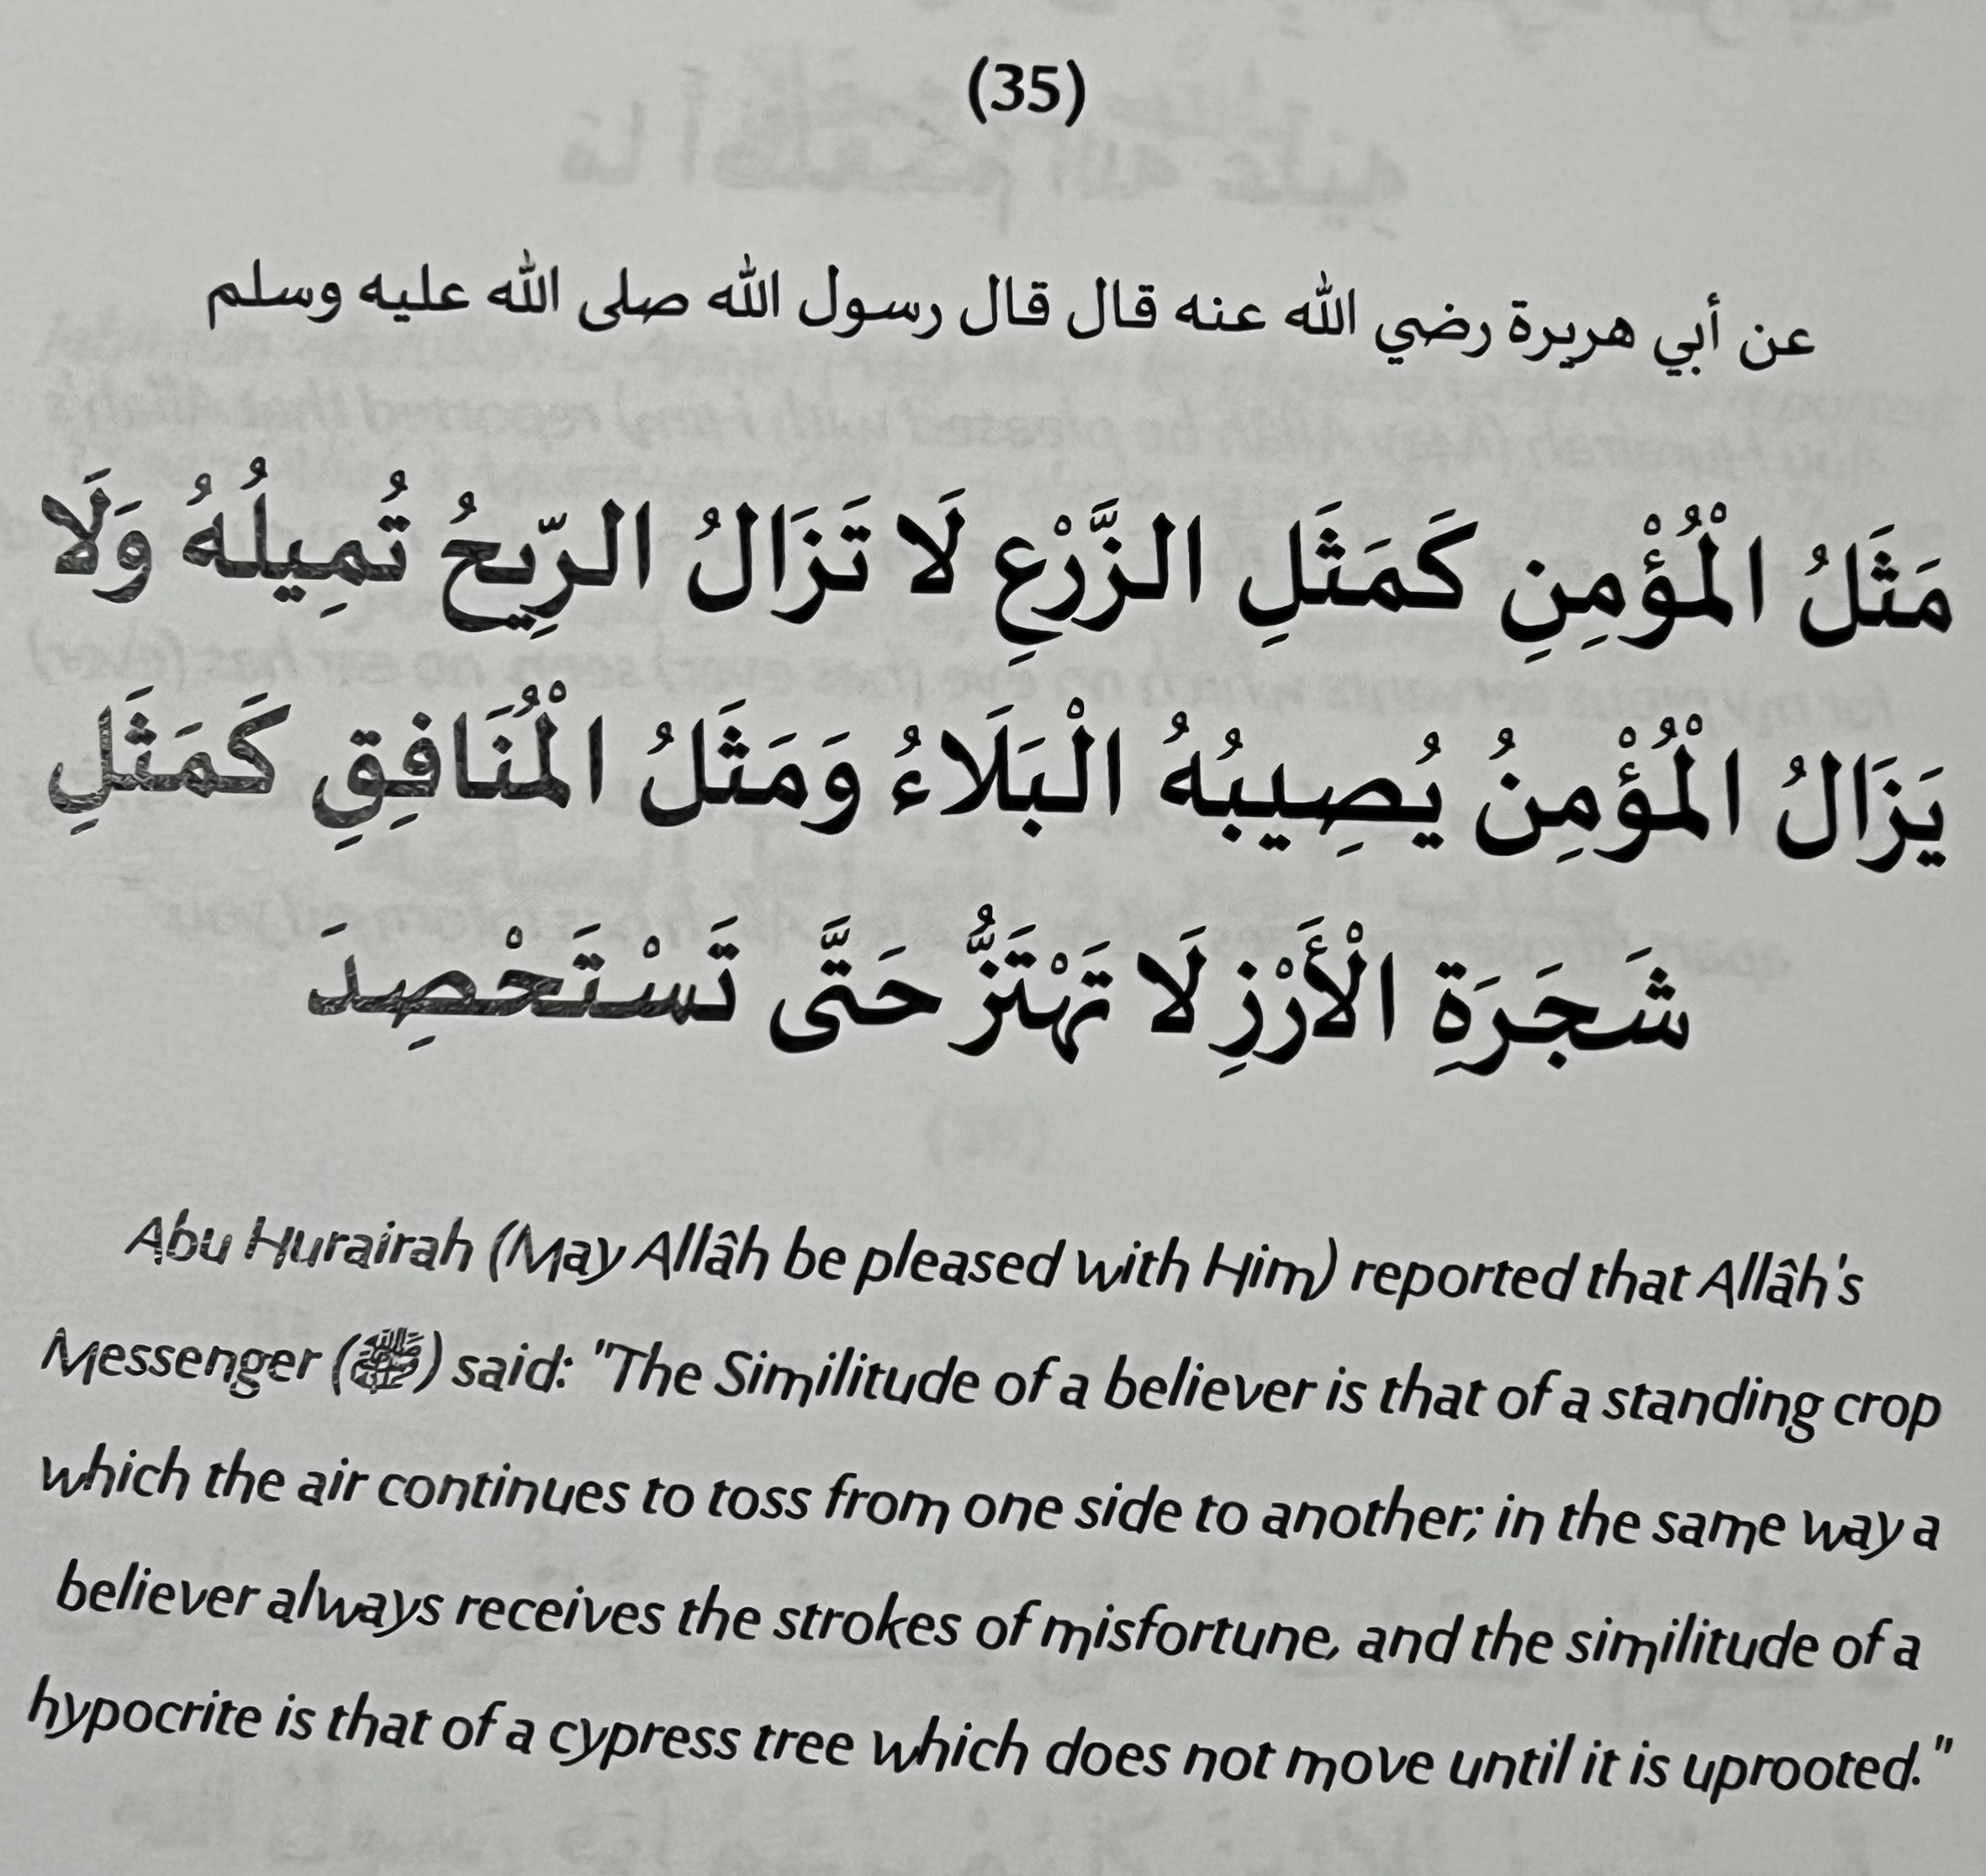 (35)
عن أبي هريرة رضي الله عنه قال قال رسول الله صلى الله عليه وسلم
مَثَلُ الْمُؤْمِنِ كَمَثَلِ الزَّرْعِ لَا تَزَالُ الرِّيحُ تُمِيلُهُ وَلَا
يَزَالُ الْمُؤْمِنُ يُصِيبُهُ الْبَلَاءُ وَمَثَلُ الْمُنَافِقِ كَمَثَلِ
شَجَرَةِ الْأَرْزِ لَا تَهْتَزُّ حَتَّى تَسْتَحْصِدَ
Abu Hurairah (May Allâh be pleased with Him) reported that Allâh's
Messenger (ﷺ) said: "The Similitude of a believer is that of a standing crop
which the air continues to toss from one side to another; in the same way a
believer always receives the strokes of misfortune, and the similitude of a
hypocrite is that of a cypress tree which does not move until it is uprooted."